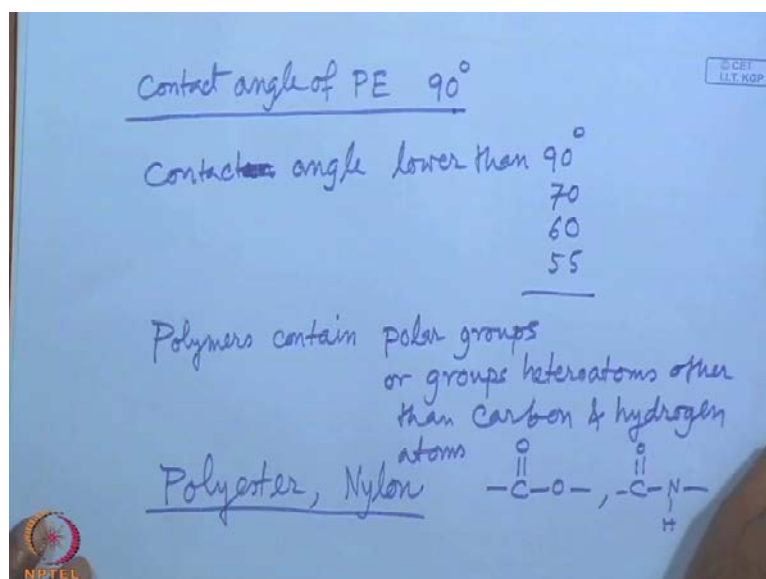 Contact angle of PE 90°
© CET
I.I.T. KGP
Contact angle lower than 90°
70
60
55
Polymers contain polar groups
or groups heteroatoms other
than carbon & hydrogen
atoms
Polyester, Nylon
O O
-C-O-, -C-N-
H
NPTEL